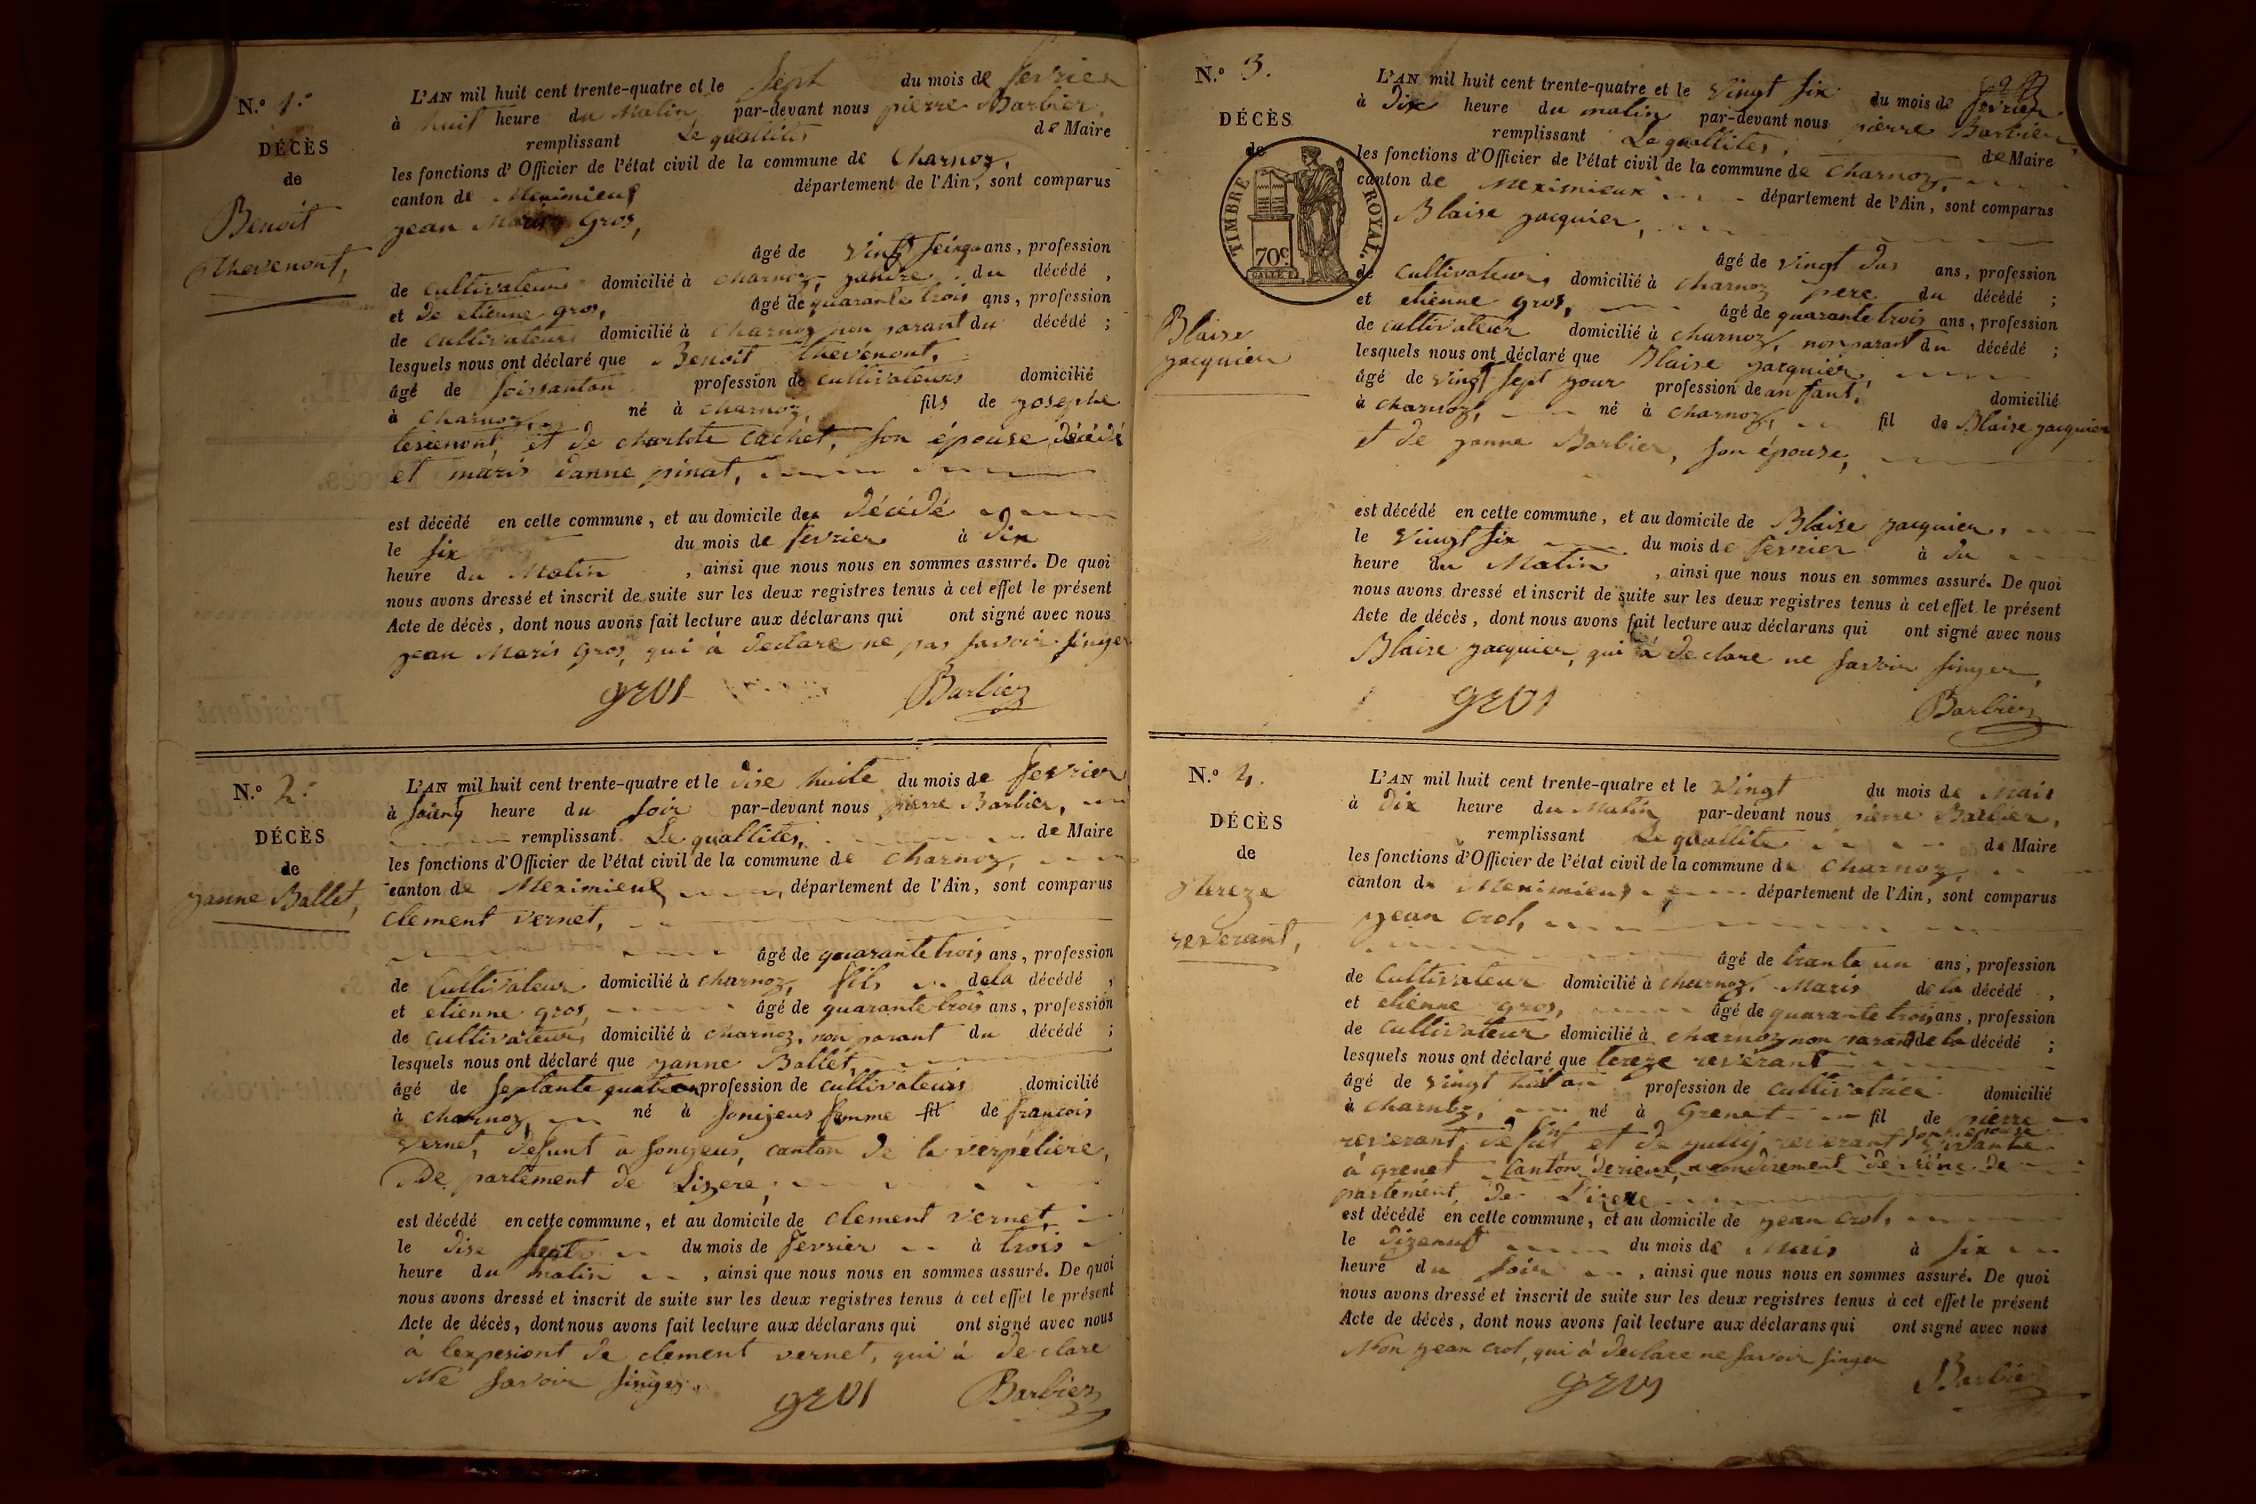 N.° 1.
DÉCÈS
de
Benoit
thevenont,
L'AN mil huit cent trente-quatre et le sept du mois de fevrier
à huit heure du Matin par-devant nous pierre Barbier,
remplissant Le quallités de Maire
les fonctions d'Officier de l'état civil de la commune de Charnoz,
canton de Meximieux département de l'Ain, sont comparus
jean Maris Gros,
âgé de vingt ans, profession
de cultivateur domicilié à charnoz, jandre du décédé,
et de etienne gros, âgé de quarante trois ans, profession
de cultivateur domicilié à Charnoz non parant du décédé;
lesquels nous ont déclaré que Benoit thevenont,
âgé de soissantan profession de cultivateurs domicilié
à charnoz, né à charnoz, fils de josephe
tevenont, et de charlote cachet, son épouse, décédé
et maris danne pinat,
est décédé en cette commune, et au domicile du décédé
le six du mois de fevrier à dix
heure du Matin, ainsi que nous nous en sommes assuré. De quoi
nous avons dressé et inscrit de suite sur les deux registres tenus à cet effet le présent
Acte de décès, dont nous avons fait lecture aux déclarans qui ont signé avec nous
jean Maris Gros, qui à declare ne pas savoir singer
gros Barbier
N.° 2.
DÉCÈS
de
janne Ballet,
L'AN mil huit cent trente-quatre et le dise huite du mois de fevrier
à sainq heure du soir par-devant nous pierre Barbier,
remplissant Le quallités, de Maire
les fonctions d'Officier de l'état civil de la commune de charnoz,
canton de Meximieux, département de l'Ain, sont comparus
clement vernet,
âgé de quarante trois ans, profession
de Cultivateur domicilié à charnoz, fils dela décédé,
et etienne gros, âgé de quarante trois ans, profession
de cultivateur, domicilié à charnoz, non parant du décédé;
lesquels nous ont déclaré que janne Ballet,
âgé de septante quatre an profession de cultivateurs domicilié
à charnoz, né à sonijeus femme fil de francois
vernet, defunt a sonjeus, canton de la verpeliere,
De partement de Lizere,
est décédé en cette commune, et au domicile de clement vernet,
le dise sept du mois de fevrier à trois
heure du matin, ainsi que nous nous en sommes assuré. De quoi
nous avons dressé et inscrit de suite sur les deux registres tenus à cet effet le présent
Acte de décès, dont nous avons fait lecture aux déclarans qui ont signé avec nous
à lexpesiont de clement vernet, qui à de clare
Ne savoir singer.
gros Barbier
N.° 3.
DÉCÈS
de
TIMBRE ROYAL.
70c.
Blaise
jacquier
L'AN mil huit cent trente-quatre et le vingt six du mois de fevrier
à dix heure du matin par-devant nous pierre Barbier,
remplissant Le quallites, de Maire
les fonctions d'Officier de l'état civil de la commune de charnoz,
canton de Meximieux département de l'Ain, sont comparus
Blaise jacquier,
âgé de vingt ans, profession
de cultivateur, domicilié à charnoz pere du décédé;
et etienne gros, âgé de quarante trois ans, profession
de cultivateur domicilié à charnoz, non parant du décédé;
lesquels nous ont déclaré que Blaise jacquier,
âgé de vingt sept jour profession de an fant, domicilié
à charnoz, né à charnoz, fil de Blaise jacquier
et de janne Barbier, son épouse,
est décédé en cette commune, et au domicile de Blaise jacquier,
le vingt six du mois de fevrier à
heure du Matin, ainsi que nous nous en sommes assuré. De quoi
nous avons dressé et inscrit de suite sur les deux registres tenus à cet effet le présent
Acte de décès, dont nous avons fait lecture aux déclarans qui ont signé avec nous
Blaise jacquier, qui à de clare ne savoir singer,
gros Barbier
N.° 4.
DÉCÈS
de
tereze
reverant,
L'AN mil huit cent trente-quatre et le vingt du mois de Mais
à dix heure du Matin par-devant nous pierre Barbier,
remplissant Le quallite de Maire
les fonctions d'Officier de l'état civil de la commune de Charnoz,
canton de Meximieux département de l'Ain, sont comparus
jean crol,
âgé de trante un ans, profession
de Cultivateur domicilié à charnoz, Maris de la décédé,
et etienne gros, âgé de quarante trois, ans, profession
de Cultivateur domicilié à charnoz non parant de la décédé;
lesquels nous ont déclaré que tereze reverant
âgé de vingt huit an profession de cultivatrice domicilié
à charnoz, né à Grenet fil de pierre
reverant, defunt et de jullij reverant son epouse vivante
à grenet canton derieux, de viéne de
partement, de Lizere
est décédé en cette commune, et au domicile de jean crol,
le dizenuf du mois de Mais à six
heure du soir, ainsi que nous nous en sommes assuré. De quoi
nous avons dressé et inscrit de suite sur les deux registres tenus à cet effet le présent
Acte de décès, dont nous avons fait lecture aux déclarans qui ont signé avec nous
Non jean crol, qui à declare ne savoir singer
gros Barbier